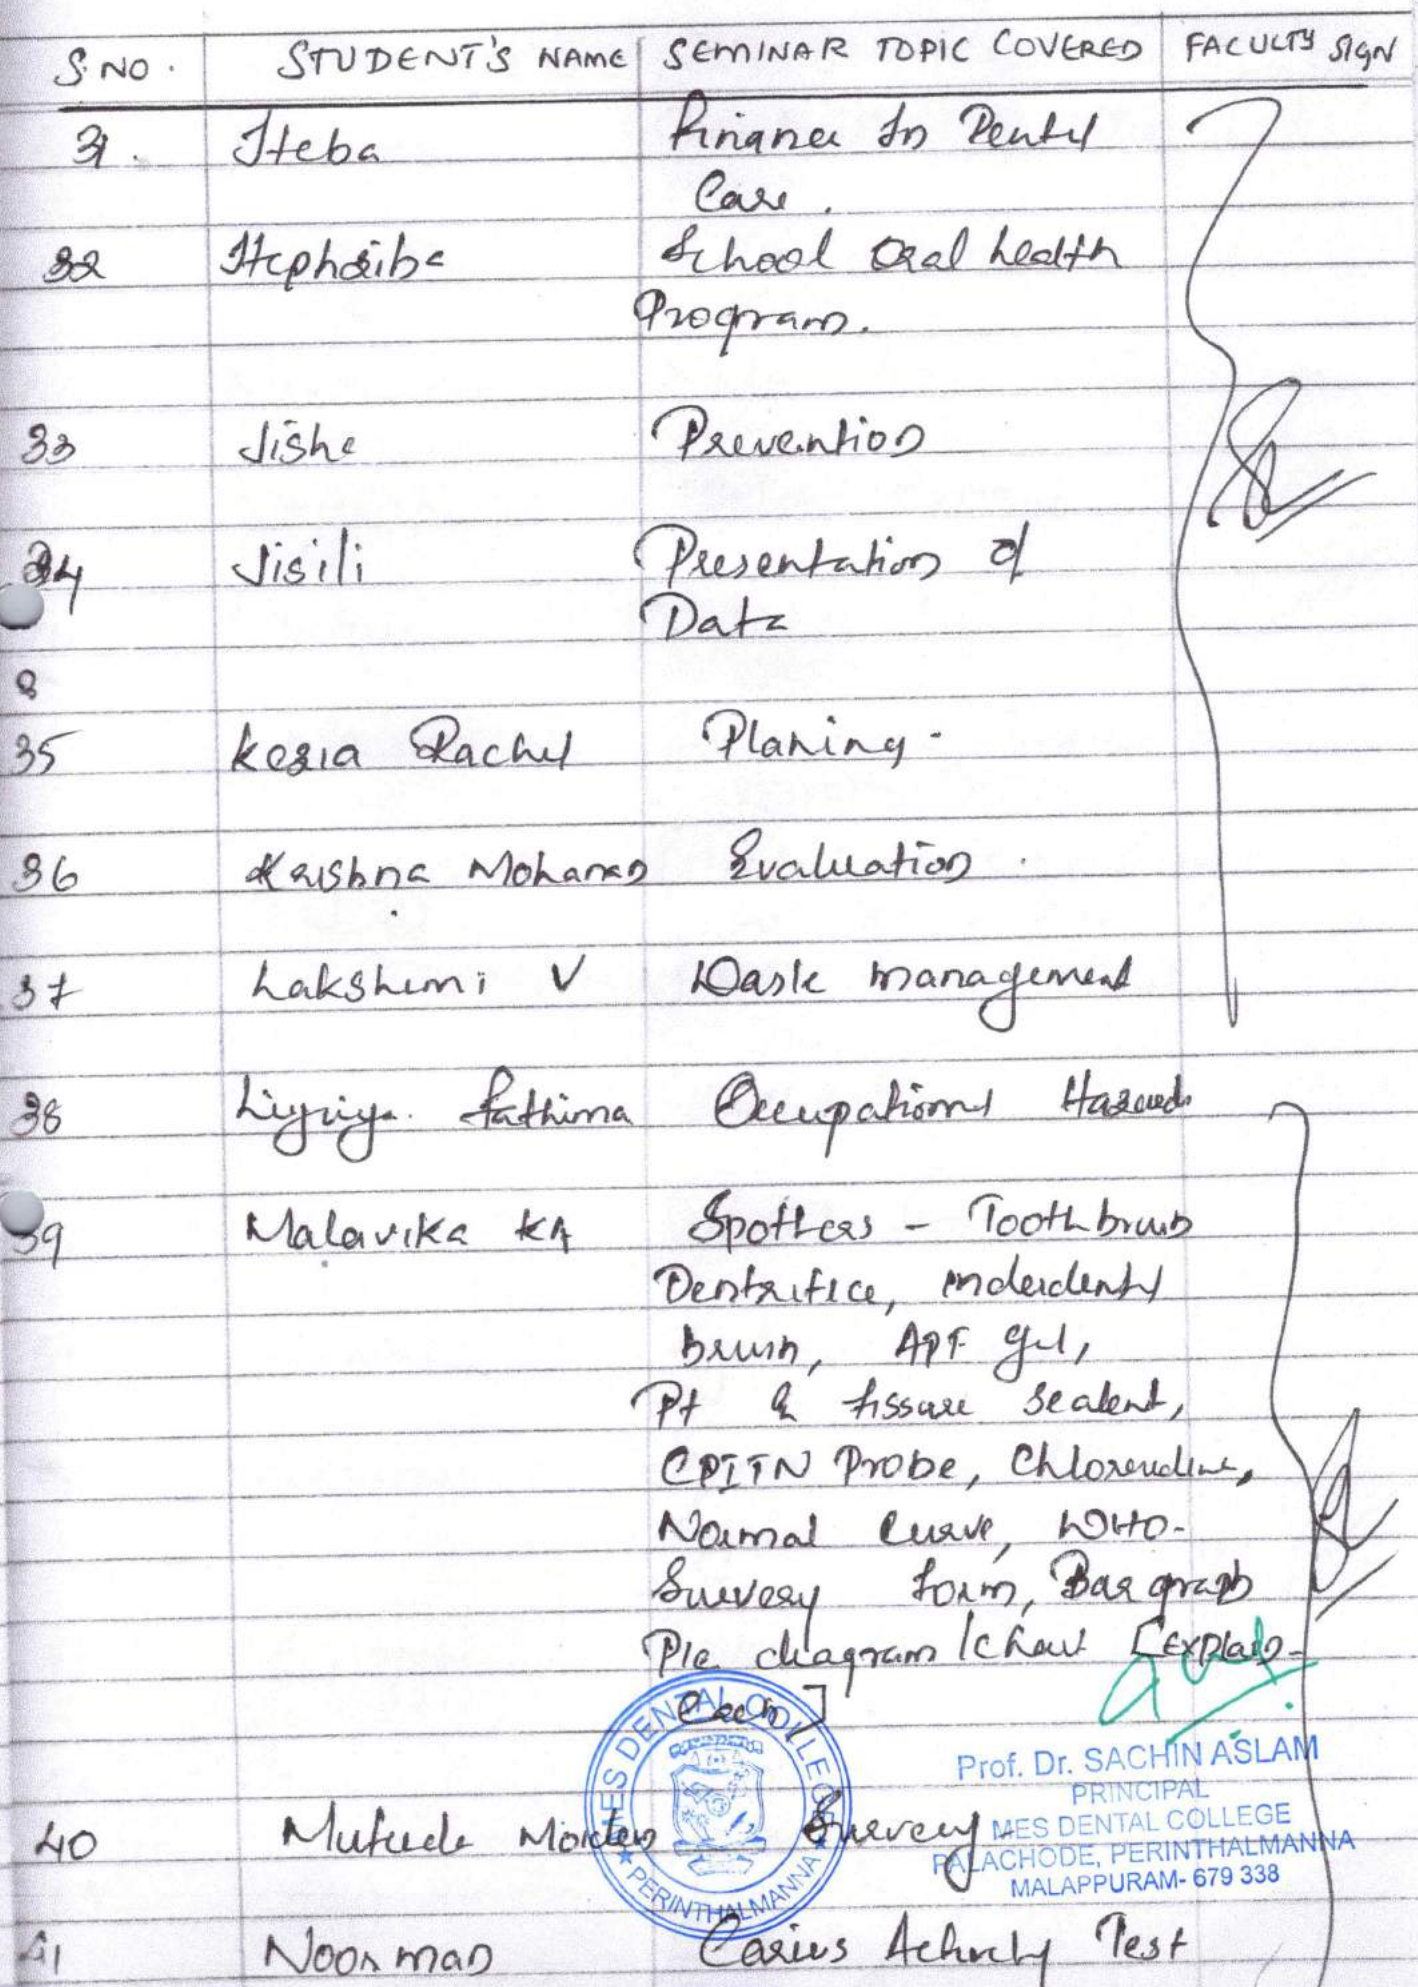 S. NO. STUDENT'S NAME SEMINAR TOPIC COVERED FACULTY SIGN
31. Heba Finance In Dental
Care.
32 Hephziba School Oral health
Program.
33 Jisha Prevention
34 Jisili Presentation of
Data
8
35 Kezia Rachel Planing -
36 Krishna Mohanan Evaluation.
37 Lakshmi V Waste management
38 Fathima Occupational Hazards
39 Malavika KA Spotters - Toothbrush
Dentrifice, interdental
brush, APF gel,
Pt & fissure sealent,
CPITN Probe,
Normal Curve, WHO-
Survery form, Bar graph
Pie diagram / chart [Explain-
Each]
MES DENTAL COLLEGE
★ PERINTHALMANNA ★
Prof. Dr. SACHIN ASLAM
PRINCIPAL
MES DENTAL COLLEGE
PALACHODE, PERINTHALMANNA
MALAPPURAM- 679 338
40 Survey
41 Caries Activity Test